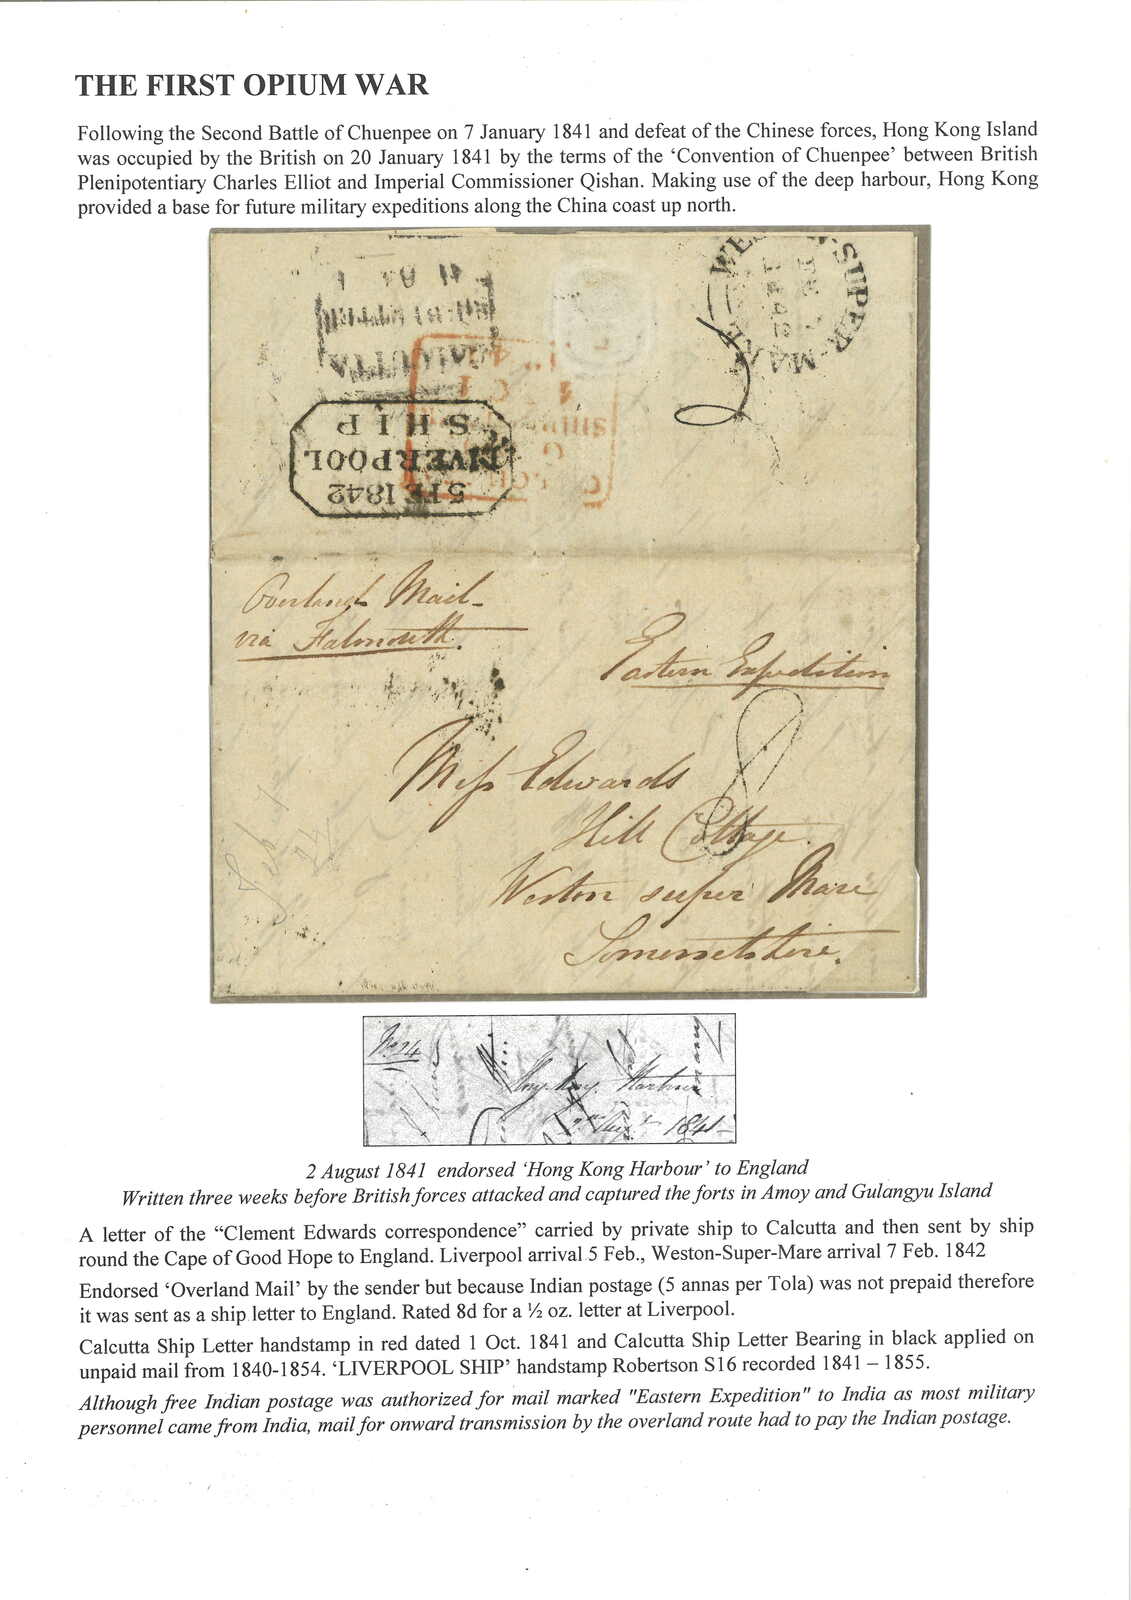 THE FIRST OPIUM WAR
Following the Second Battle of Chuenpee on 7 January 1841 and defeat of the Chinese forces, Hong Kong Island
was occupied by the British on 20 January 1841 by the terms of the ‘Convention of Chuenpee’ between British
Plenipotentiary Charles Elliot and Imperial Commissioner Qishan. Making use of the deep harbour, Hong Kong
provided a base for future military expeditions along the China coast up north.
SUPER-MA
5 FE 1842
LIVERPOOL
SHIP
Overland Mail
via Falmouth.
Eastern Expedition
8
Miss Edwards
Hill Cottage.
Weston super Mare
Somersetshire.
No. 24
Hong Kong Harbour
1841
2 August 1841 endorsed ‘Hong Kong Harbour’ to England
Written three weeks before British forces attacked and captured the forts in Amoy and Gulangyu Island
A letter of the “Clement Edwards correspondence” carried by private ship to Calcutta and then sent by ship
round the Cape of Good Hope to England. Liverpool arrival 5 Feb., Weston-Super-Mare arrival 7 Feb. 1842
Endorsed ‘Overland Mail’ by the sender but because Indian postage (5 annas per Tola) was not prepaid therefore
it was sent as a ship letter to England. Rated 8d for a ½ oz. letter at Liverpool.
Calcutta Ship Letter handstamp in red dated 1 Oct. 1841 and Calcutta Ship Letter Bearing in black applied on
unpaid mail from 1840-1854. ‘LIVERPOOL SHIP’ handstamp Robertson S16 recorded 1841 – 1855.
Although free Indian postage was authorized for mail marked "Eastern Expedition" to India as most military
personnel came from India, mail for onward transmission by the overland route had to pay the Indian postage.